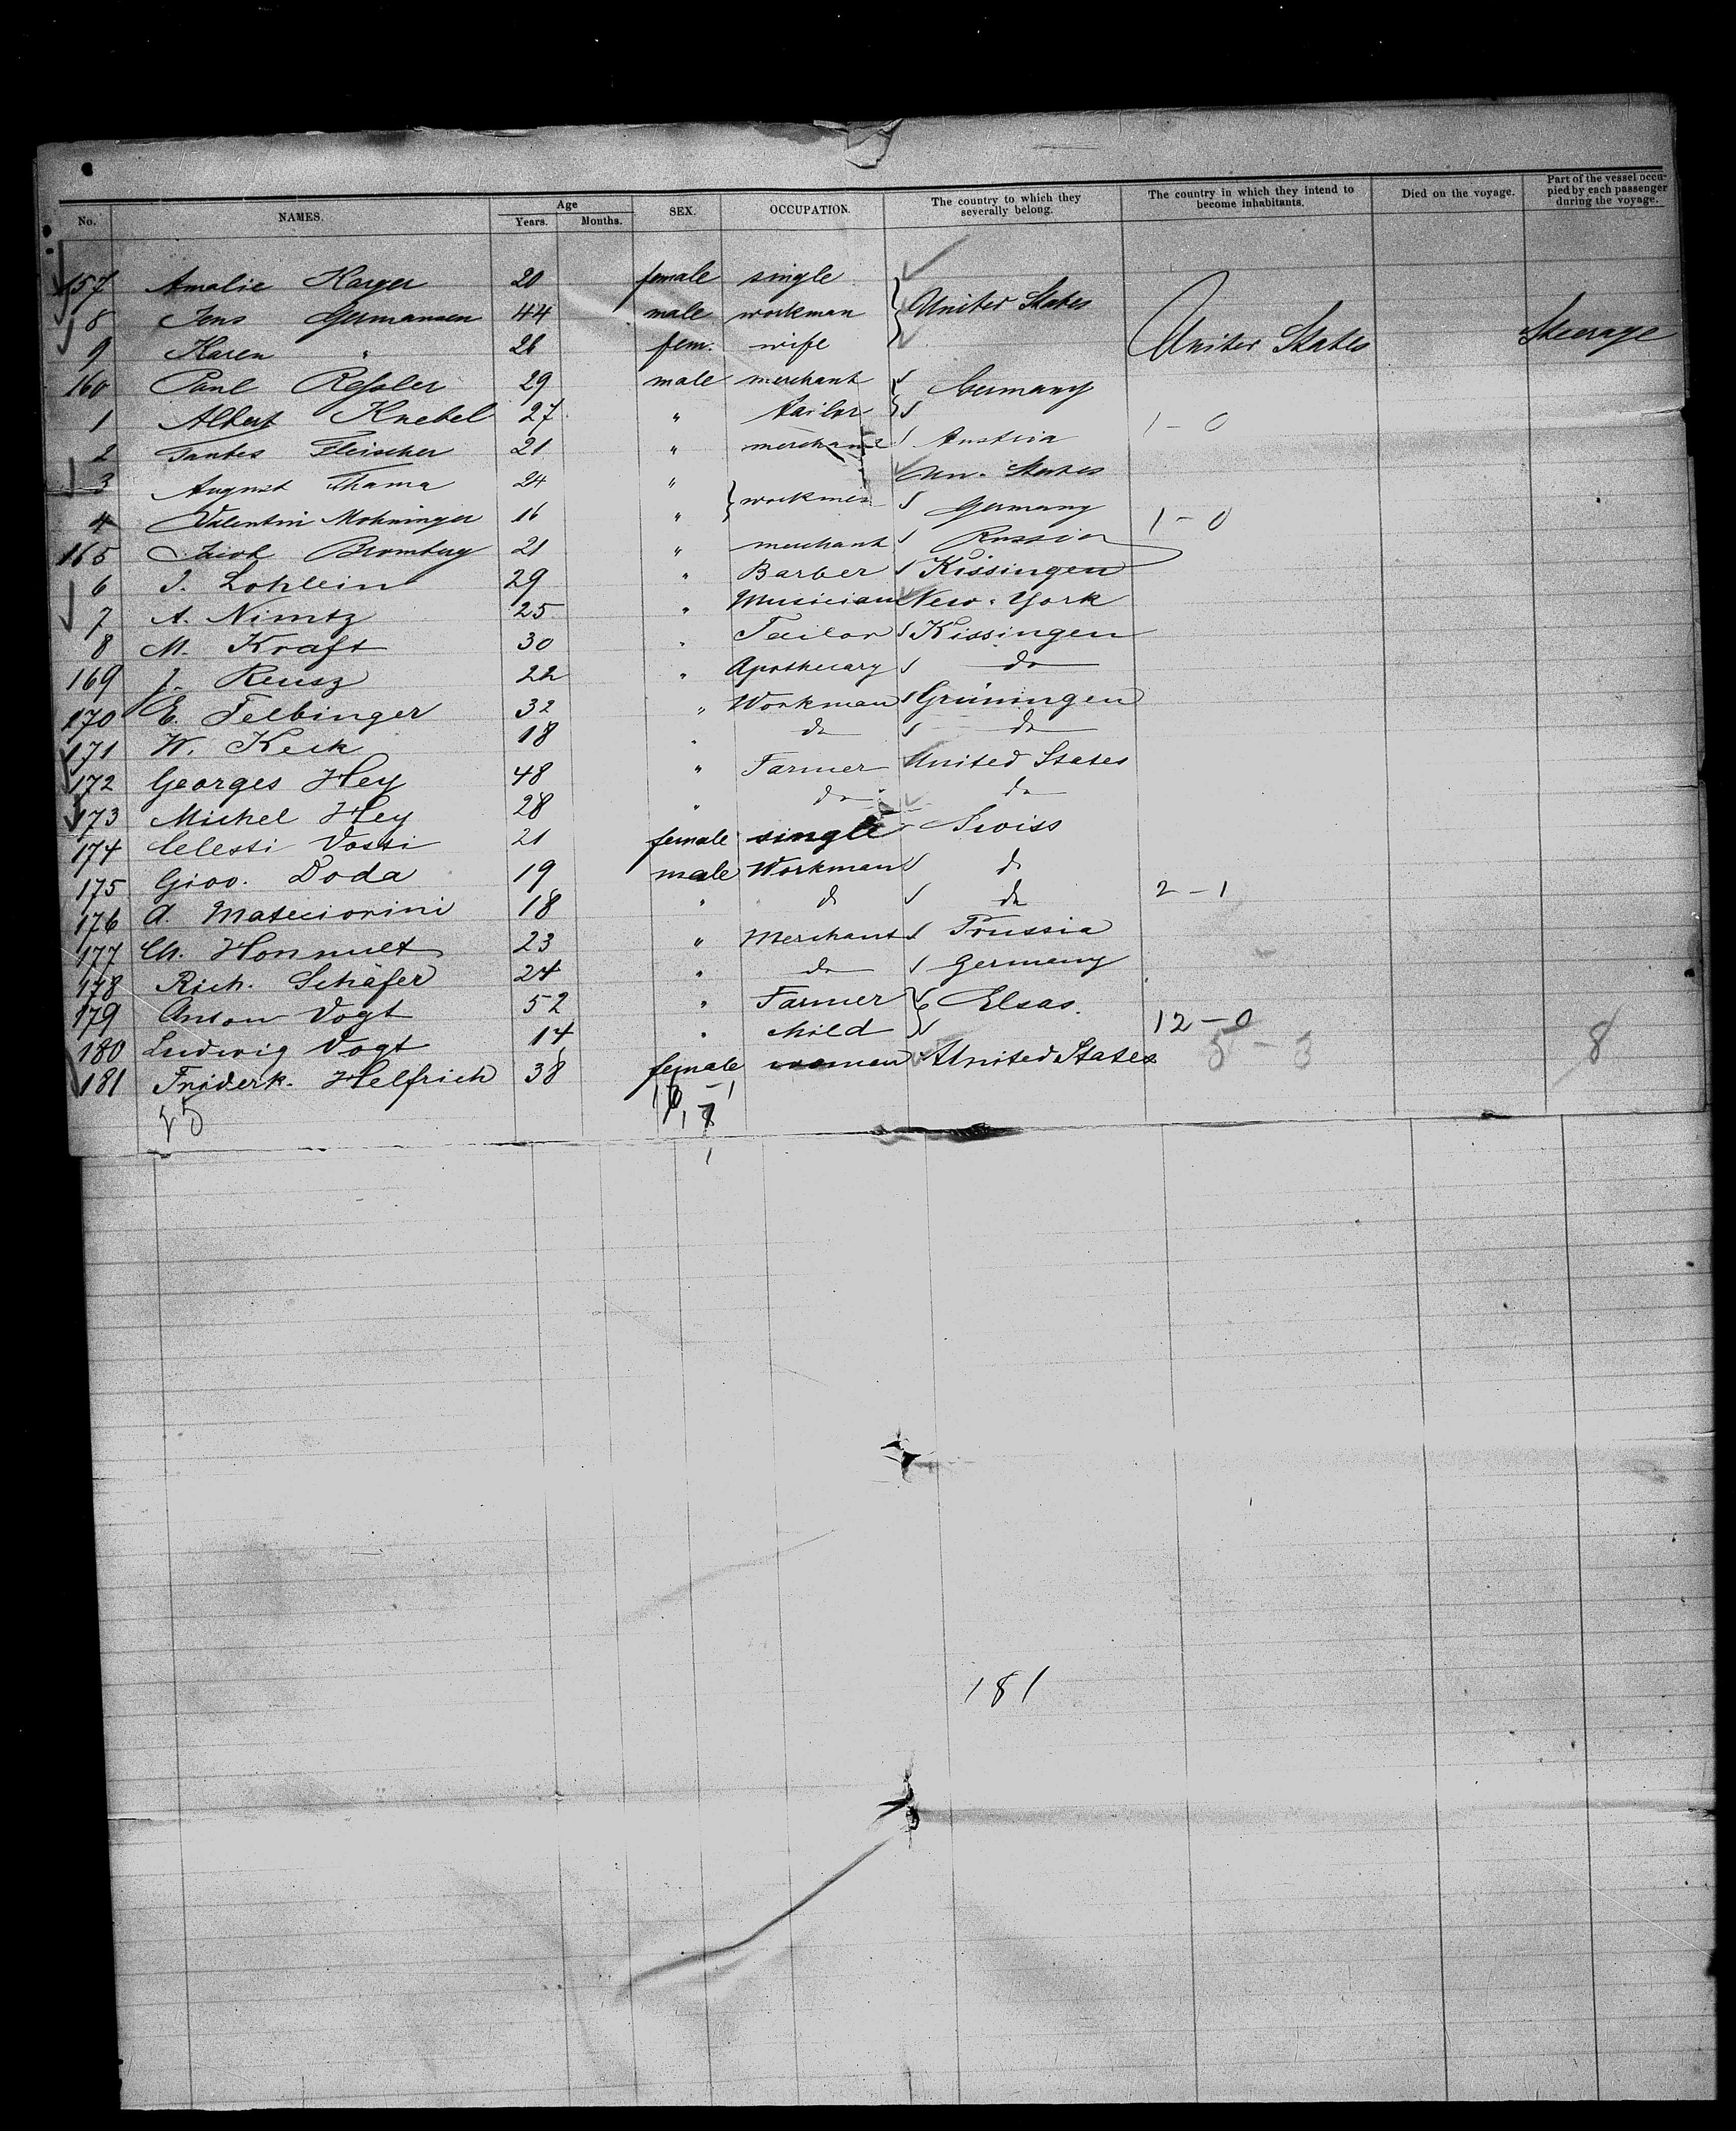 No. NAMES. Age Years. Months. SEX. OCCUPATION. The country to which they severally belong. The country in which they intend to become inhabitants. Died on the voyage. Part of the vessel occupied by each passenger during the voyage.
157 Amalie Karger 20 female single } United States
8 Jens Germansen 44 male workman
9 Karen " 26 fem. wife United States Steerage
160 Paul Ressler 29 male merchant } Germany
1 Albert Knebel 27 " tailor
2 Fleischer 21 " merchant Austria 1-0
3 August Thama 24 " } workmen Un. States
4 Valentin Mohninger 16 " Germany
165 Bromberg 21 " merchant Russia 1-0
6 J. Lohlein 29 " Barber Kissingen
7 A. Nimtz 25 " Musician New-York
8 M. Kraft 30 " Tailor Kissingen
169 J. Reusz 22 " Apothecary do
170 E. Felbinger 32 " Workman Grüningen
171 W. Keck 18 " do do
172 Georges Hey 48 " Farmer United States
173 Michel Hey 28 " do do
174 Celesti Vossi 21 female single Swiss
175 Giov. Doda 19 male Workman do
176 A. Mateciorini 18 " do do 2-1
177 Ch. Honnult 23 " Merchant Prussia
178 Rich. Schäfer 24 " do Germany
179 Anton Vogt 52 " Farmer } Elsas.
180 Ludwig Vogt 14 " child 12-0
181 Friderk. Helfrich 38 female woman United States 5-3 8
25
181